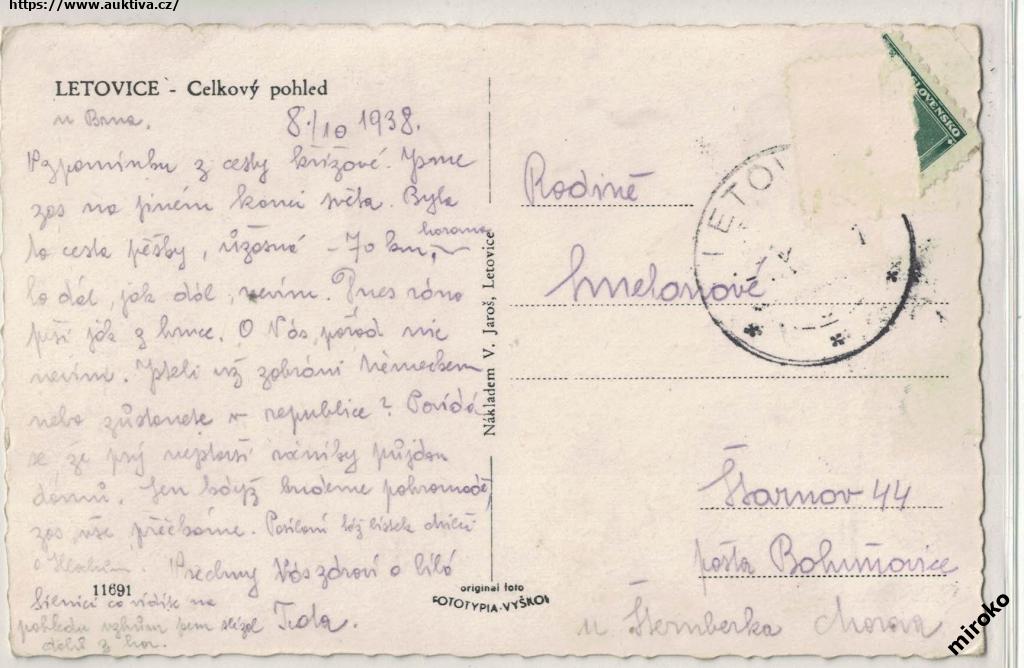 https://www.auktiva.cz/
LETOVICE - Celkový pohled
u Brna, 8./10 1938.
Vzpomínku z cesty křížové. Jsme
zas na jiném konci světa. Byla
to cesta pěšky, úžasná - 70 km,
horama
to dál, jak dál, nevím. Dnes ráno
prší jak z konce. O Vás pořád nic
nevím. Jste-li už zabráni Německem
nebo zůstanete v republice? Povídá
se, že prý nejstarší ročníky půjdou
domů. Jen když budeme pohromadě,
zas vše přečkáme. Posílám též lístek
Všechny Vás zdraví a líbá
11691
silnicí co vidíte na
pohledu vzhůru jsem slézal Tada.
dolů z hor.
Nákladem V. Jaroš, Letovice
original foto
FOTOTYPIA-VYŠKOV
SLOVENSKO
LETO
Rodině
Smelanově
Štarnov 44
pošta Bohuňovice
u Šternberka Morava
miroko